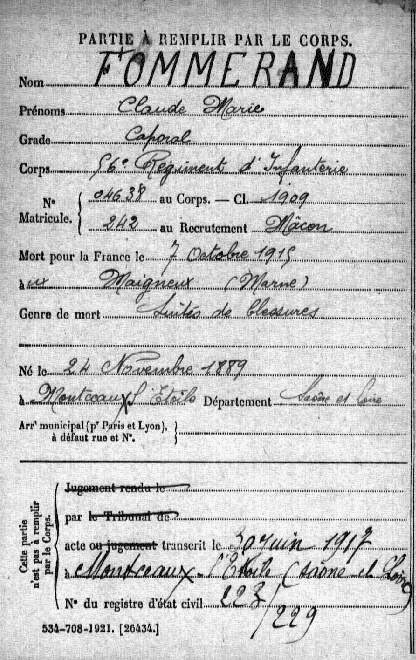 PARTIE À REMPLIR PAR LE CORPS.
Nom FOMMERAND
Prénoms Claude Marie
Grade Caporal
Corps 56e Régiment d'Infanterie
N° Matricule. 04638 au Corps. — Cl. 1909
242 au Recrutement Mâcon
Mort pour la France le 7 Octobre 1915
à ux Maigneux (Marne)
Genre de mort Suites de blessures
Né le 24 Novembre 1889
à Montceaux l'Etoile Département Saône et Loire
Arrt municipal (pr Paris et Lyon), à défaut rue et N°.
Cette partie n'est pas à remplir par le Corps.
Jugement rendu le
par le Tribunal de
acte ou jugement transcrit le 30 Juin 1917
à Montceaux-l'Etoile (Saône et Loire)
N° du registre d'état civil 223/
/229
534-708-1921. [26434.]